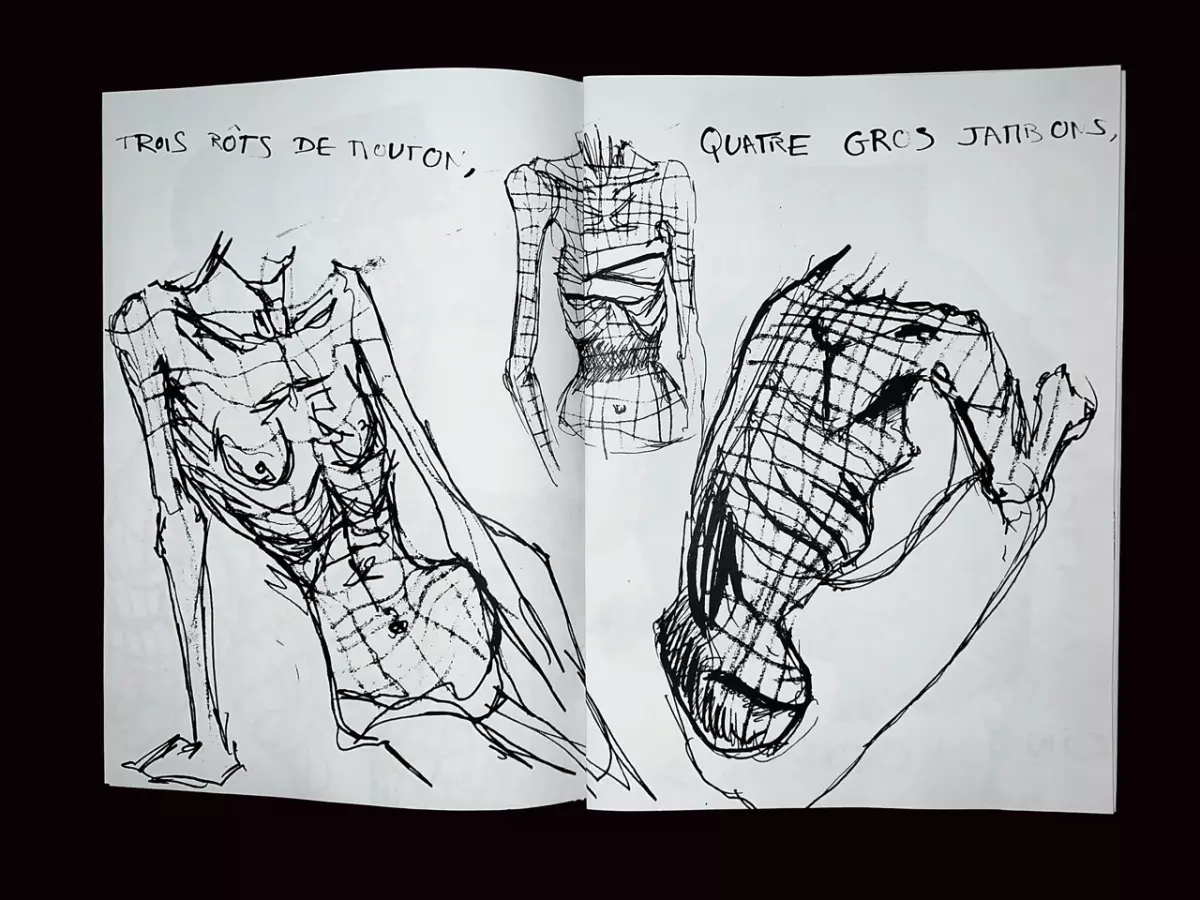 TROIS RÔTS DE MOUTON,
QUATRE GROS JAMBONS,